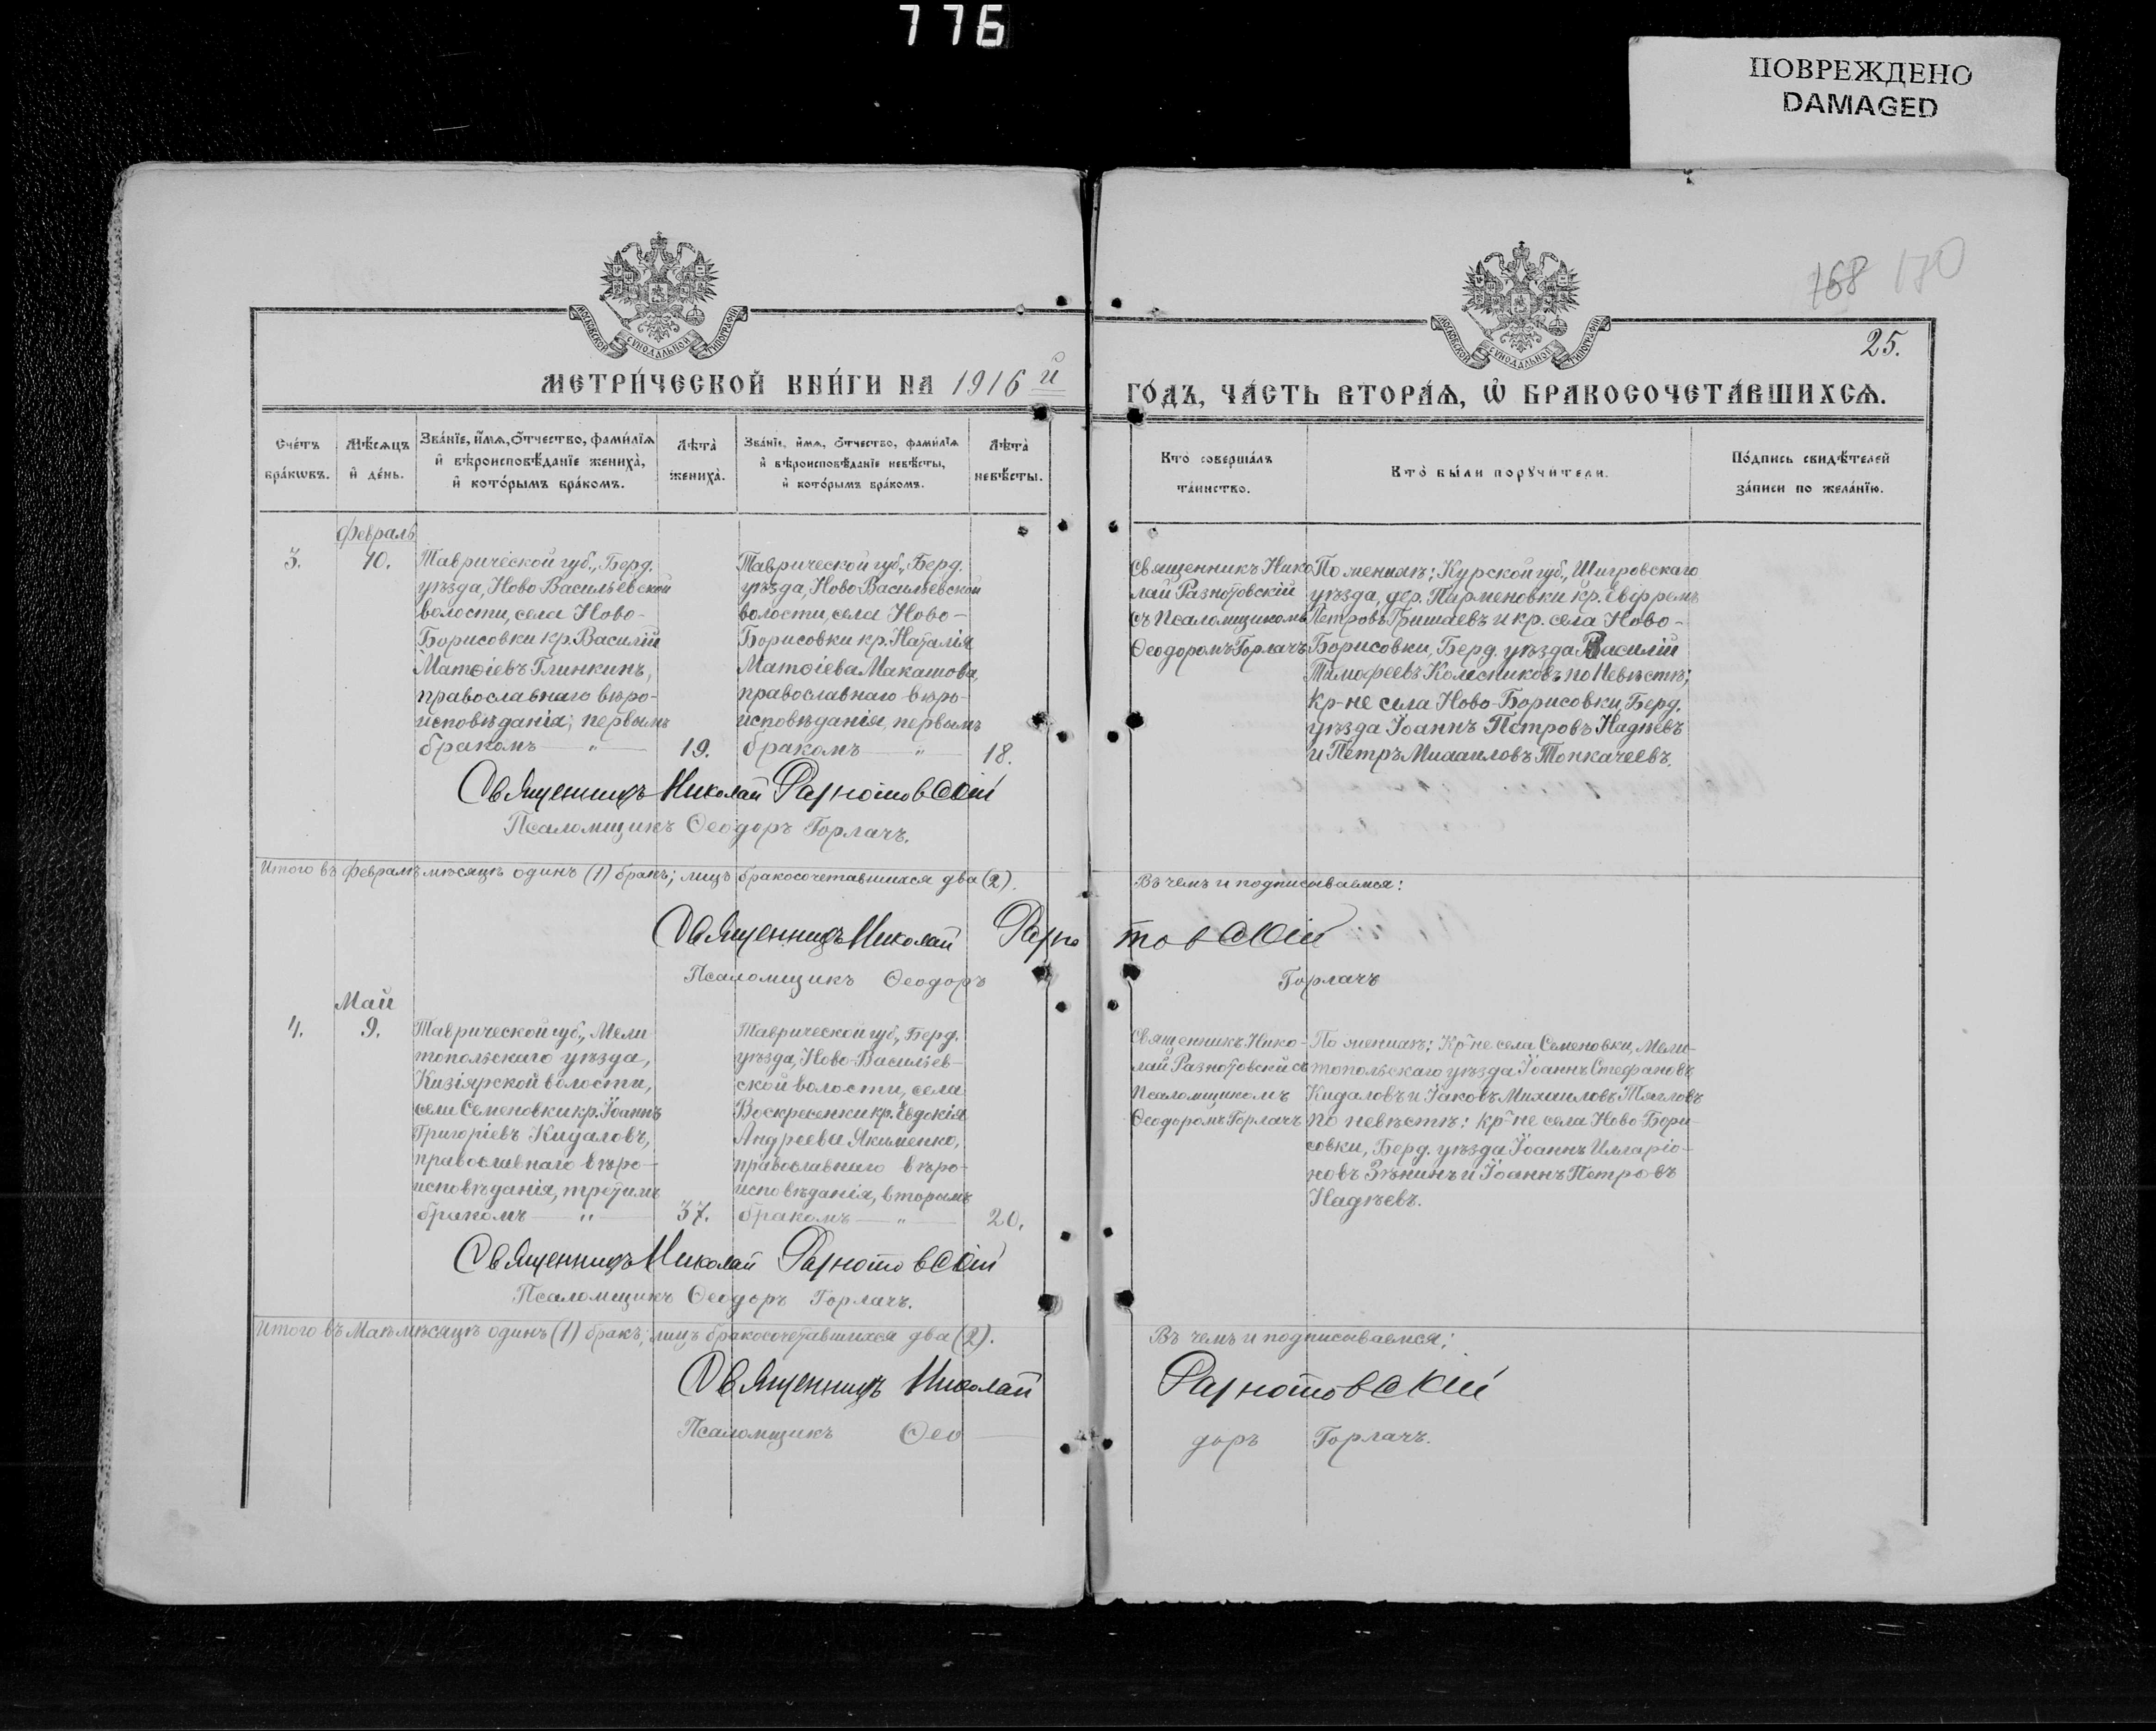 776
ПОВРЕЖДЕНО
DAMAGED
МОСКОВСКОЙ СѴНОДАЛЬНОЙ ТИПОГРАФІИ
МОСКОВСКОЙ СѴНОДАЛЬНОЙ ТИПОГРАФІИ
168 170
25.
МЕТРИ́ЧЕСКОЙ КНИ́ГИ НА 1916 й
ГО́ДЪ, ЧА́СТЬ ВТОРА́Ѧ, Ѡ҆ БРАКОСОЧЕТА́ВШИХСѦ.
Сче́тъ бра́кѡвъ.
Мѣ́сѧцъ и҆ де́нь.
Зва́нїе, и҆́мѧ, ѻ҆́тчество, фами́лїѧ и҆ вѣроисповѣ́данїе жениха̀, и҆ кото́рымъ бра́комъ.
Лѣ́та жениха̀.
Зва́нїе, и҆́мѧ, ѻ҆́тчество, фами́лїѧ и҆ вѣроисповѣ́данїе невѣ́сты, и҆ кото́рымъ бра́комъ.
Лѣ́та невѣ́сты.
Кто̀ соверша́лъ та́инство.
Кто̀ бы́ли порꙋчи́тели.
По́дпись свидѣ́телей за́писи по жела́нїю.
Февраль
3.
10.
Таврической губ., Берд.
уѣзда, Ново-Васильевской
волости, села Ново-
Борисовки кр. Василій
Матѳіевъ Глинкинъ,
православнаго вѣро-
исповѣданія; первымъ
бракомъ — " —
19.
Таврической губ., Берд.
уѣзда, Ново-Васильевской
волости, села Ново-
Борисовки кр. Наталія
Матѳіева Макашова,
православнаго вѣро-
исповѣданія, первымъ
бракомъ — " —
18.
Священникъ Нико
лай Разнотовскій
съ Псаломщикомъ
Ѳеодоромъ Горлачъ
По женихѣ; Курской губ., Щигровскаго
уѣзда, дер. Парменовки кр. Евфремъ
Петровъ Гришаевъ и кр. села Ново-
Борисовки, Берд. уѣзда Василій
Тимофеевъ Колесниковъ по Невѣстѣ;
Кр-не села Ново-Борисовки, Берд.
уѣзда Іоаннъ Петровъ Надѣевъ
и Петръ Михаиловъ Топкачеевъ.
Священникъ Николай Разнотовскій
Псаломщикъ Ѳеодоръ Горлачъ.
Итого въ Февралѣ мѣсяцѣ одинъ (1) бракъ; лицъ бракосочетавшихся два (2).
Въ чемъ и подписываемся:
Священникъ Николай Разнотовскій
Псаломщикъ Ѳеодоръ Горлачъ
Май
4.
9.
Таврической губ., Мели
топольскаго уѣзда,
Кизіярской волости,
села Семеновки кр. Іоаннъ
Григоріевъ Кидаловъ,
православнаго вѣро-
исповѣданія, третимъ
бракомъ — " —
37.
Таврической губ., Берд.
уѣзда, Ново-Васильев-
ской волости, села
Воскресенки кр. Евдокія
Андреева Якименко,
православнаго вѣро-
исповѣданія, вторымъ
бракомъ — " —
20.
Священникъ Нико-
лай Разнотовскій съ
Псаломщикомъ
Ѳеодоромъ Горлачъ
По женихѣ: Кр-не села Семеновки, Мели-
топольскаго уѣзда Іоаннъ Стефановъ
Кидаловъ и Іаковъ Михаиловъ Тягловъ
по невѣстѣ: кр-не села Ново-Бори-
совки, Берд. уѣзда Іоаннъ Илларіо-
новъ Зѣнинъ и Іоаннъ Петровъ
Надѣевъ.
Священникъ Николай Разнотовскій
Псаломщикъ Ѳеодоръ Горлачъ.
Итого въ Маѣ мѣсяцѣ одинъ (1) бракъ; лицъ бракосочетавшихся два (2).
Въ чемъ и подписываемся:
Священникъ Николай Разнотовскій
Псаломщикъ Ѳео — доръ Горлачъ.